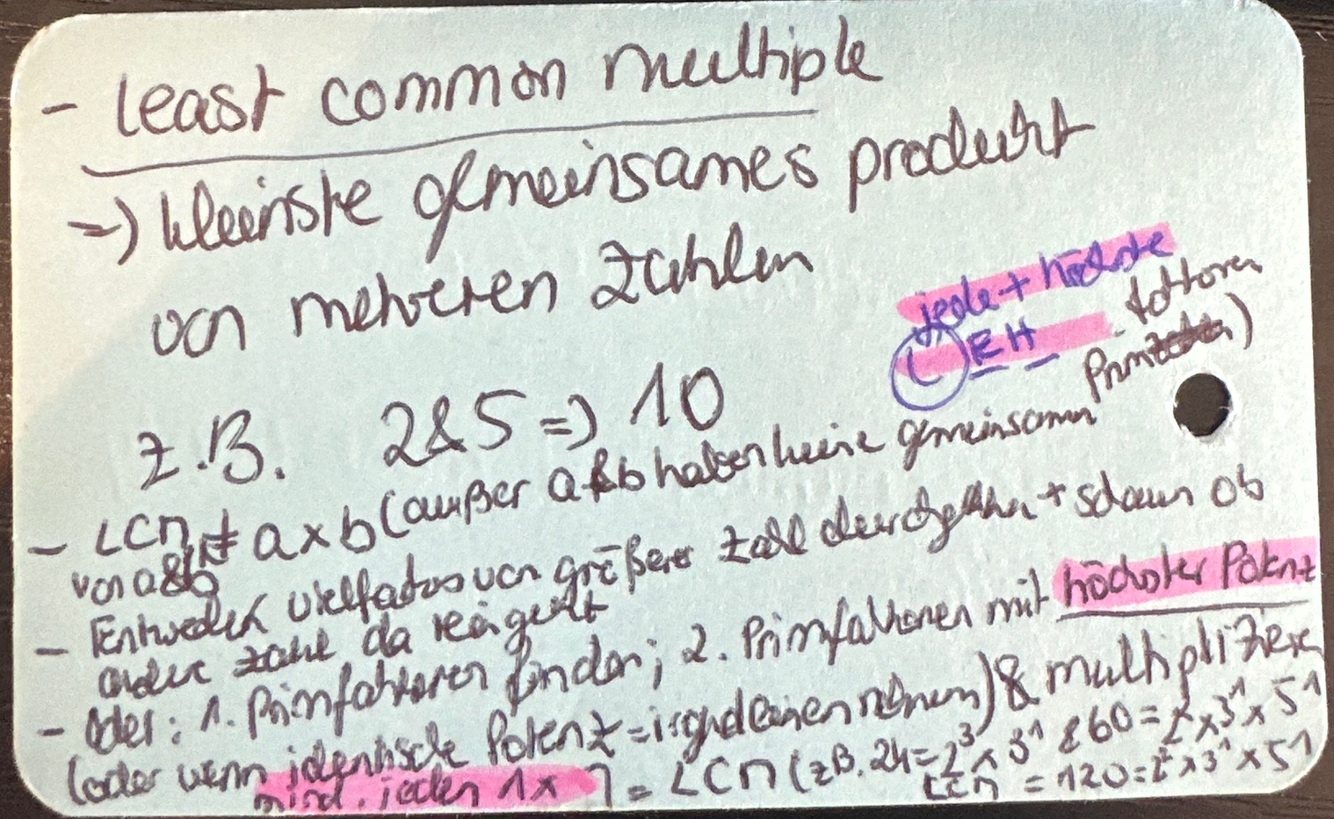 - least common multiple
=> kleinste gemeinsames produkt
von mehreren Zahlen
jede + höchste
L EH
z.B. 2&5 => 10
- LCM ≠ a x b (außer a & b haben keine gemeinsamen Primfaktoren)
von a&b
- Entweder vielfaches von größerer Zahl durchgehen + schauen ob
andere Zahl da reingeht
- Oder: 1. Primfaktoren finden; 2. Primfaktoren mit höchster Potenz
(oder wenn identische Potenz = irgendeinen nehmen) & multiplizieren
mind. jeden 1x = LCM (zB. 24 = 2³ x 3¹ & 60 = 2² x 3¹ x 5¹
LCM = 120 = 2³ x 3¹ x 5¹